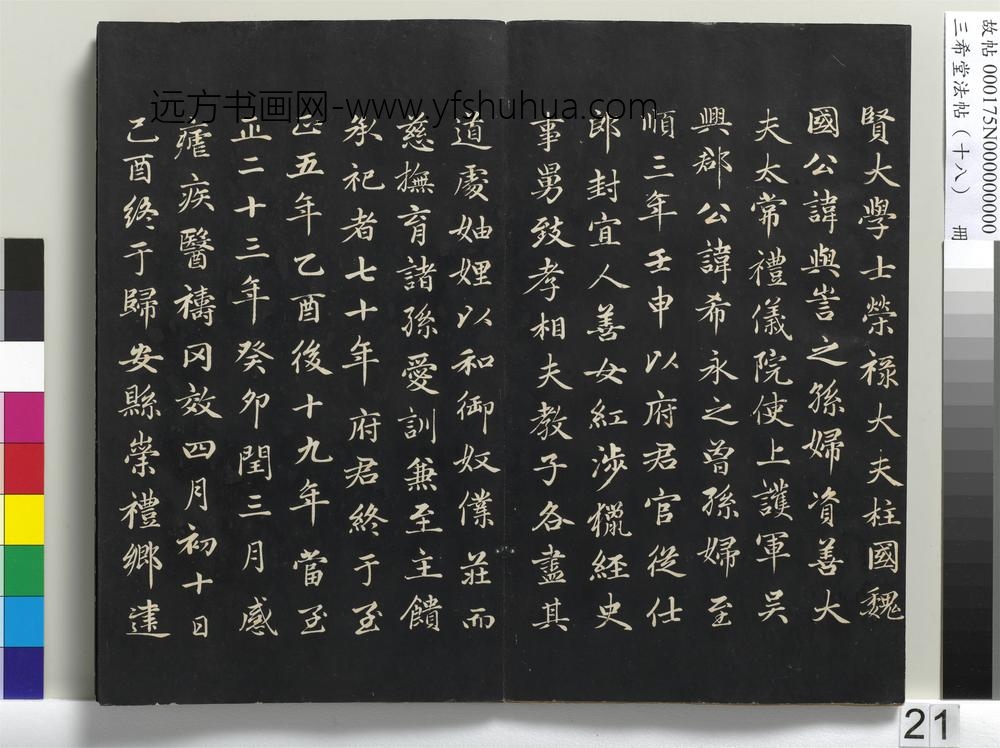 賢大學士榮祿大夫柱國魏
國公諱與訔之孫婦資善大
夫太常禮儀院使上護軍吴
興郡公諱希永之曽孫婦至
順三年壬申以府君官從仕
郎封宜人善女紅涉獵經史
事舅致孝相夫教子各盡其
道處妯娌以和御奴僕莊而
慈撫育諸孫愛訓兼至主饋
承祀者七十年府君終于至
正五年乙酉後十九年當至
正二十三年癸卯閏三月感
瘧疾醫禱罔效四月初十日
己酉終于歸安縣崇禮鄉逮
远方书画网-www.yfshuhua.com
故帖 000175N000000000
三希堂法帖（十八） 冊
21